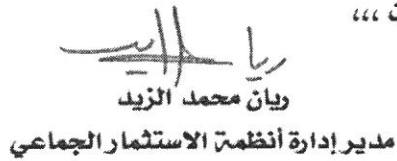 ،،،
ريان محمد الزيد
مدير إدارة أنظمة الاستثمار الجماعي